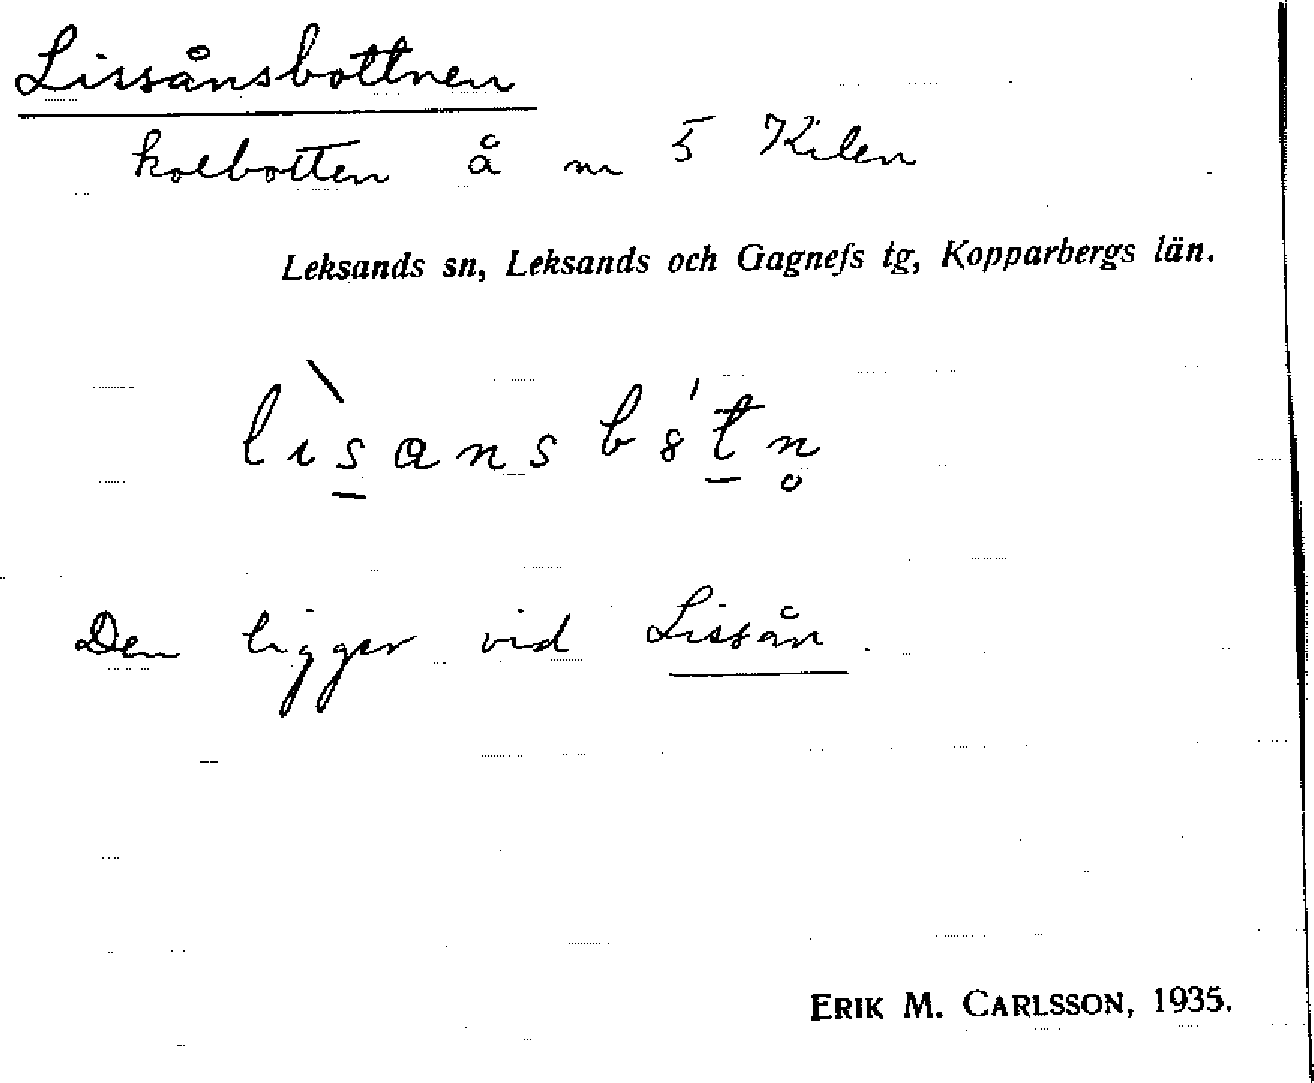 Lissånsbottnen
kolbotten å m 5 Kilen
Leksands sn, Leksands och Gagnefs tg, Kopparbergs län.
lìs̲ansb8́t̲n̥
Den ligger vid Lissån.
ERIK M. CARLSSON, 1935.